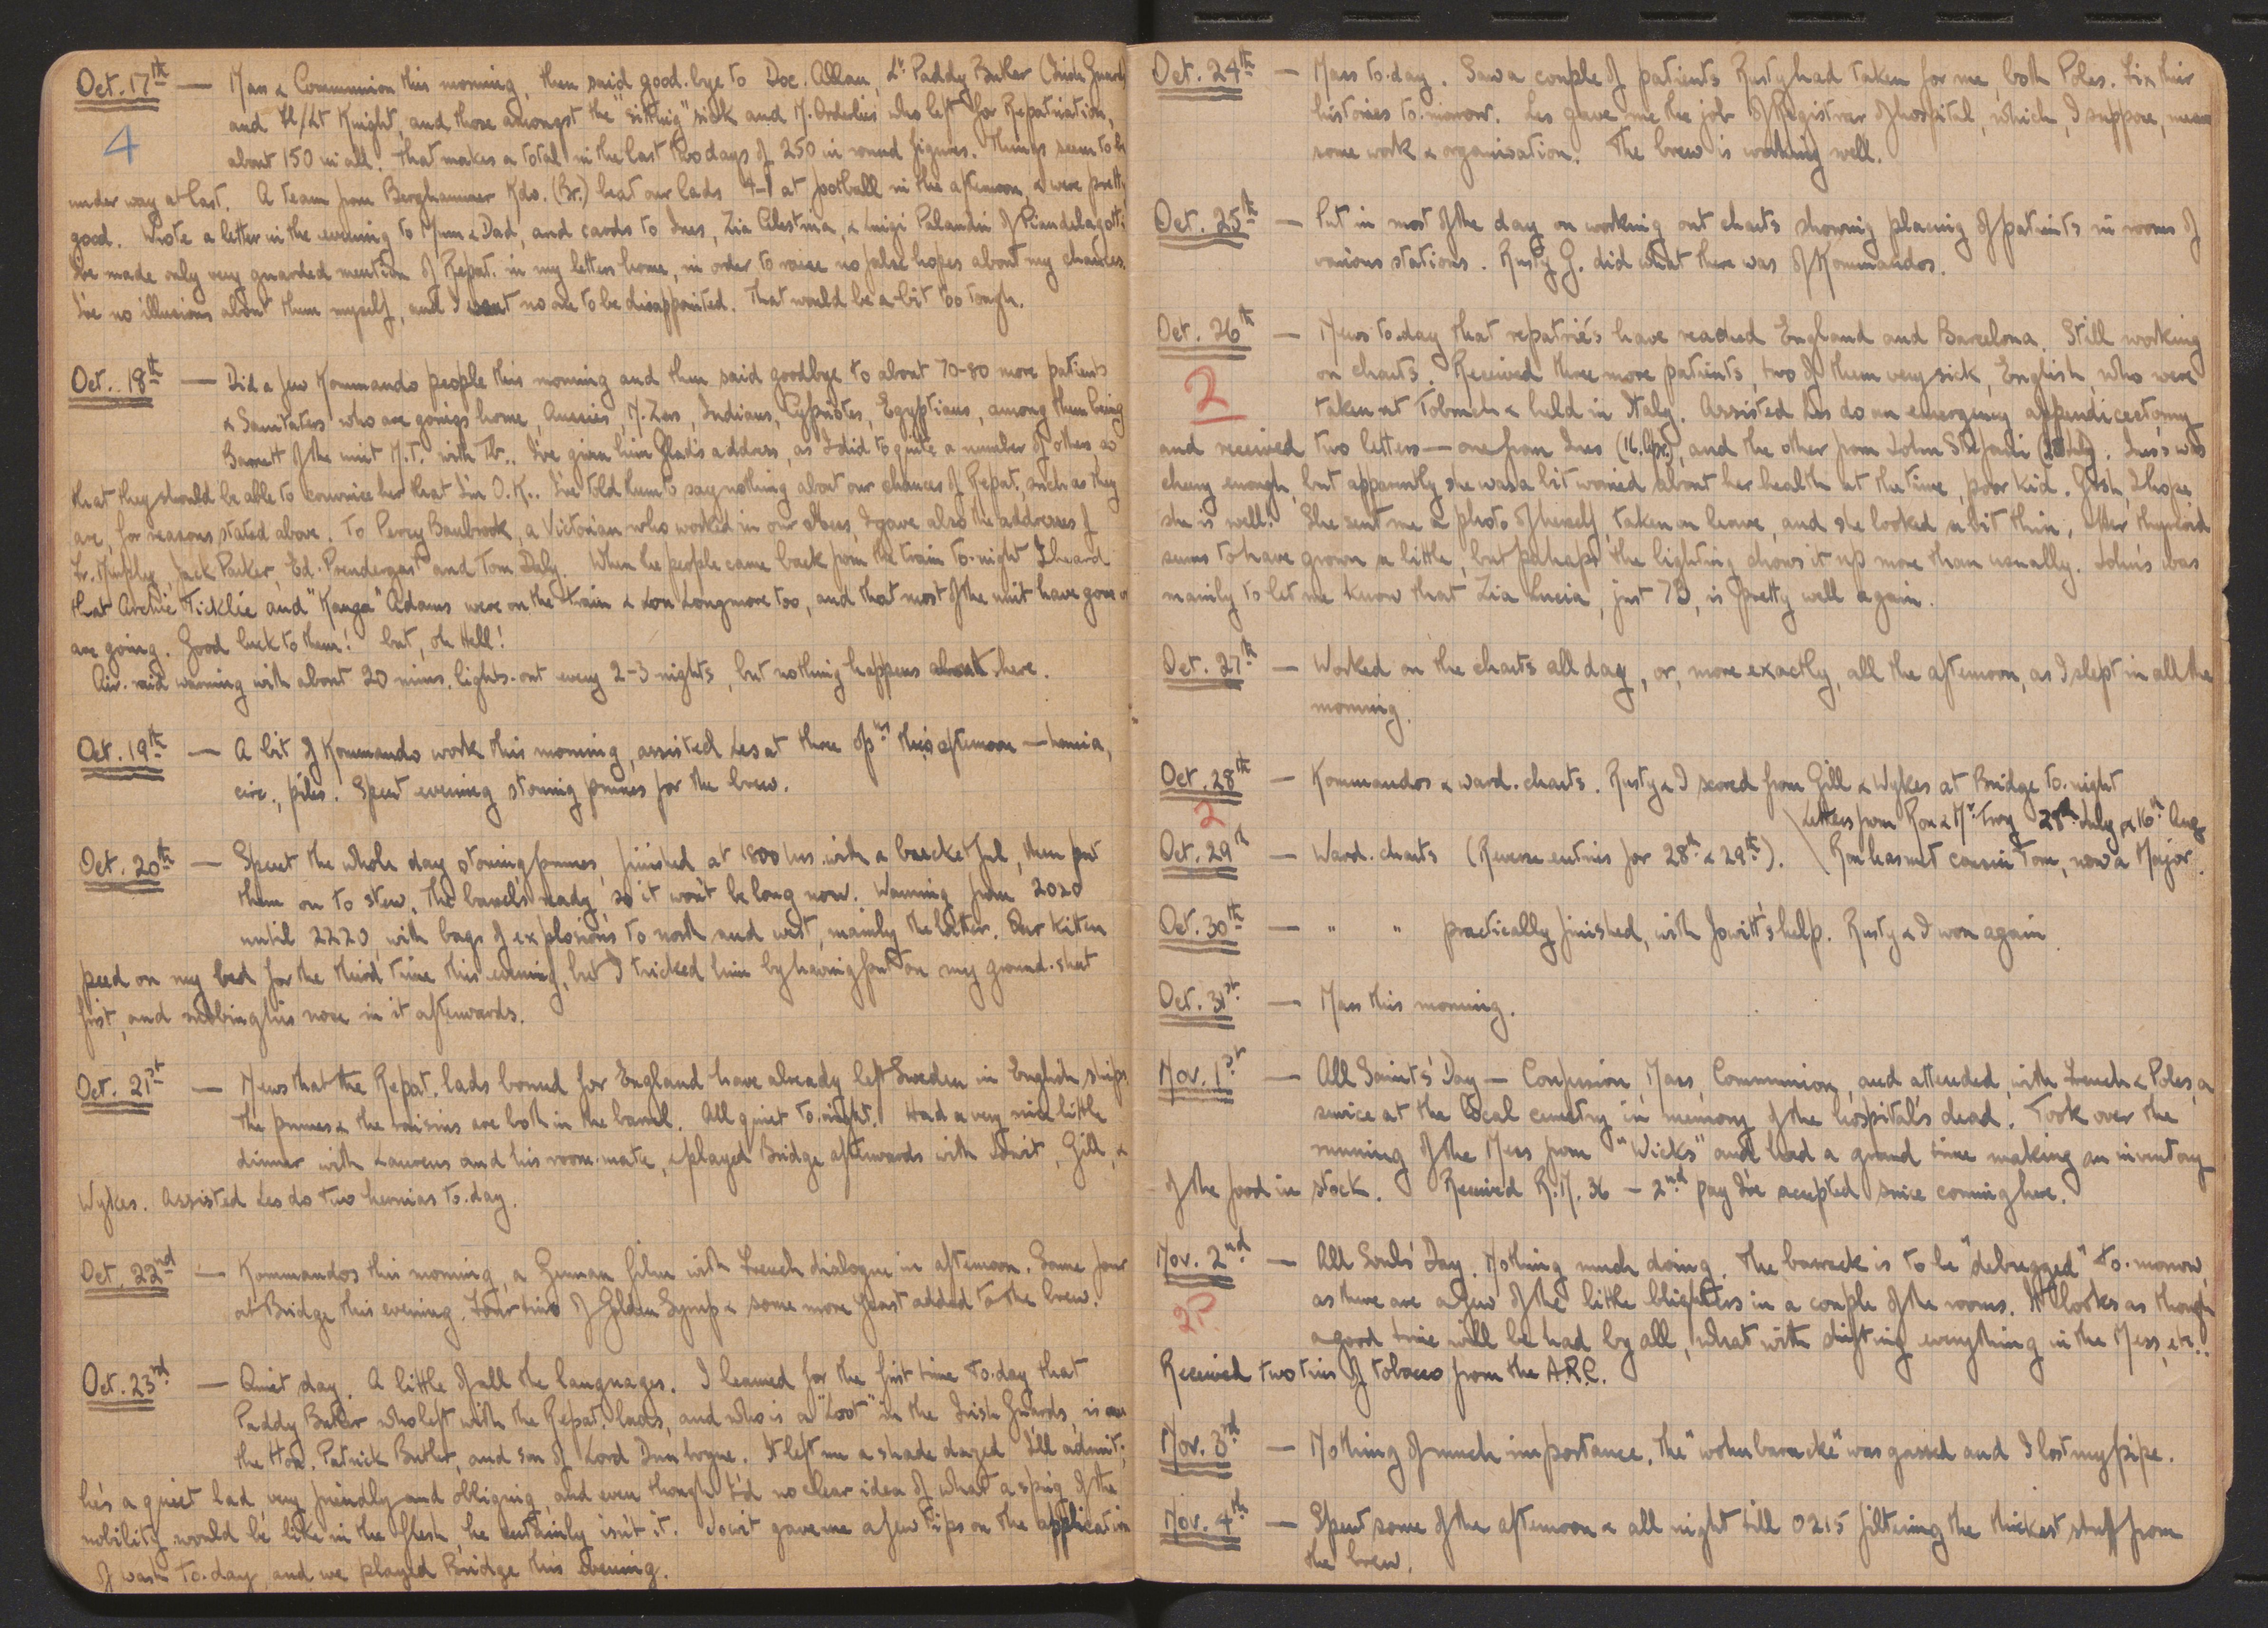 Oct. 17th — Mass & Communion this morning, then said good-bye to Doc. Allan, Lt. Paddy Butler (Irish Guards)
4
and Fl/Lt Knight, and those amongst the "sitting" sick and M. Orderlies who left for Repatriation,
about 150 in all. That makes a total in the last two days of 250 in round figures. Things seem to be
under way at last. A team from Berghammer Kdo. (Br.) beat our lads 4-1 at football in the afternoon, & were pretty
good. Wrote a letter in the evening to Mum & Dad, and cards to Ines, Zia Celestina, & Luigi Palandri of Piandelagotti.
I've made only very guarded mention of Repat. in my letters home, in order to raise no false hopes about my chances.
I've no illusions about them myself, and I want no one to be disappointed. That would be a bit too tough.
Oct. 18th — Did a few Kommando people this morning and then said goodbye to about 70-80 more patients
& Sanitaters who are going home, Aussies, N.Zers, Indians, Cypriotes, Egyptians, among them being
Barrett of the unit M.T. with Tb.. I've given him Glad's address, as I did to quite a number of others so
that they should be able to convince her that I'm O.K.. I've told them to say nothing about our chances of Repat., such as they
are, for reasons stated above. To Percy Banbrook, a Victorian who worked in our Mess, I gave also the addresses of
Fr. Murphy, Jack Parker, Ed. Prendergast and Tom Daly. When the people came back from the train to-night I heard
that Archie Ticklie and "Kanga" Adams were on the train & Lou Longmore too, and that most of the unit have gone or
are going. Good luck to them! but, oh Hell!
Air-raid warning with about 20 mins. lights-out every 2-3 nights, but nothing happens about here.
Oct. 19th — A bit of Kommando work this morning, assisted Les at three opns this afternoon — hernia,
circ., piles. Spent evening stoning prunes for the brew.
Oct. 20th — Spent the whole day stoning prunes, finished at 1800 hrs. with a bucketful, then put
them on to stew. The barrel's ready, so it won't be long now. Warning from 2020
until 2220, with bags of explosions to north and west, mainly the latter. Our kitten
peed on my bed for the third time this evening, but I tricked him by having put on my ground-sheet
first, and rubbing his nose in it afterwards.
Oct. 21st — News that the Repat. lads bound for England have already left Sweden in English ships.
The prunes & the raisins are both in the barrel. All quiet to-night. Had a very nice little
dinner with Laurens and his room-mate, & played Bridge afterwards with Jowit, Gill, &
Wykes. Assisted Les do two hernias to-day.
Oct. 22nd — Kommandos this morning, a German film with French dialogue in afternoon. Same four
at Bridge this evening. Four tins of Golden Syrup & some more yeast added to the brew.
Oct. 23rd — Quiet day. A little of all the languages. I learned for the first time to-day that
Paddy Butler who left with the Repat. lads, and who is a "Loot" in the Irish Guards, is
the Hon. Patrick Butler, and son of Lord Dunboyne. It left me a shade dazed I'll admit;
he's a quiet lad, very friendly and obliging, and even though I'd no clear idea of what a sprig of the
nobility would be like in the flesh, he certainly isn't it. Jowit gave me a few tips on the application
of wash to-day, and we played Bridge this evening.
Oct. 24th — Mass to-day. Saw a couple of patients Rusty had taken for me, both Poles. Fix their
histories to-morrow. Les gave me the job of Registrar of hospital, which, I suppose, means
some work & organisation. The brew is working well.
Oct. 25th — Put in most of the day on working out charts showing placing of patients in rooms of
various stations. Rusty G. did what there was of Kommandos.
Oct. 26th — News to-day that repatriés have reached England and Barcelona. Still working
2
on charts. Received three more patients, two of them very sick, English, who were
taken at Tobruch & held in Italy. Assisted Les do an emergency appendicectomy
and received two letters — one from Ines (16. Apr.), and the other from John Stefani (28 July). Ines's was
cheery enough, but apparently she was a bit worried about her health at the time, poor kid. Gosh, I hope
she is well! She sent me a photo of herself, taken on leave, and she looked a bit thin. Her thyroid
seems to have grown a little, but perhaps the lighting shows it up more than usually. John's was
mainly to let me know that Zia Lucia, just 73, is pretty well again.
Oct. 27th — Worked on the charts all day, or, more exactly, all the afternoon, as I slept in all the
morning.
Oct. 28th — Kommandos & ward-charts. Rusty & I scored from Gill & Wykes at Bridge to-night
2
Letters from Ron & Mr Troy 28th July & 16th Aug
Oct. 29th — Ward-charts (Reverse entries for 28th & 29th). Ron has met cousin Tom, now a Major.
Oct. 30th — " " practically finished, with Jowitt's help. Rusty & I won again.
Oct. 31st — Mass this morning.
Nov. 1st — All Saints' Day — Confession, Mass, Communion, and attended, with French & Poles, a
service at the local cemetry in memory of the hospital's dead. Took over the
running of the Mess from "Wicks" and had a grand time making an inventory
of the food in stock. Received R.M. 36 — 2nd pay I've accepted since coming here.
Nov. 2nd — All Souls' Day. Nothing much doing. The barrack is to be "debugged" to-morrow,
2?
as there are a few of the little blighters in a couple of the rooms. It looks as though
a good time will be had by all, what with shifting everything in the Mess, etc..
Received two tins of tobacco from the A.R.C.
Nov. 3rd — Nothing of much importance. The "wohnbaracke" was gassed and I lost my pipe.
Nov. 4th — Spent some of the afternoon & all night till 0215 filtering the thickest stuff from
the brew.